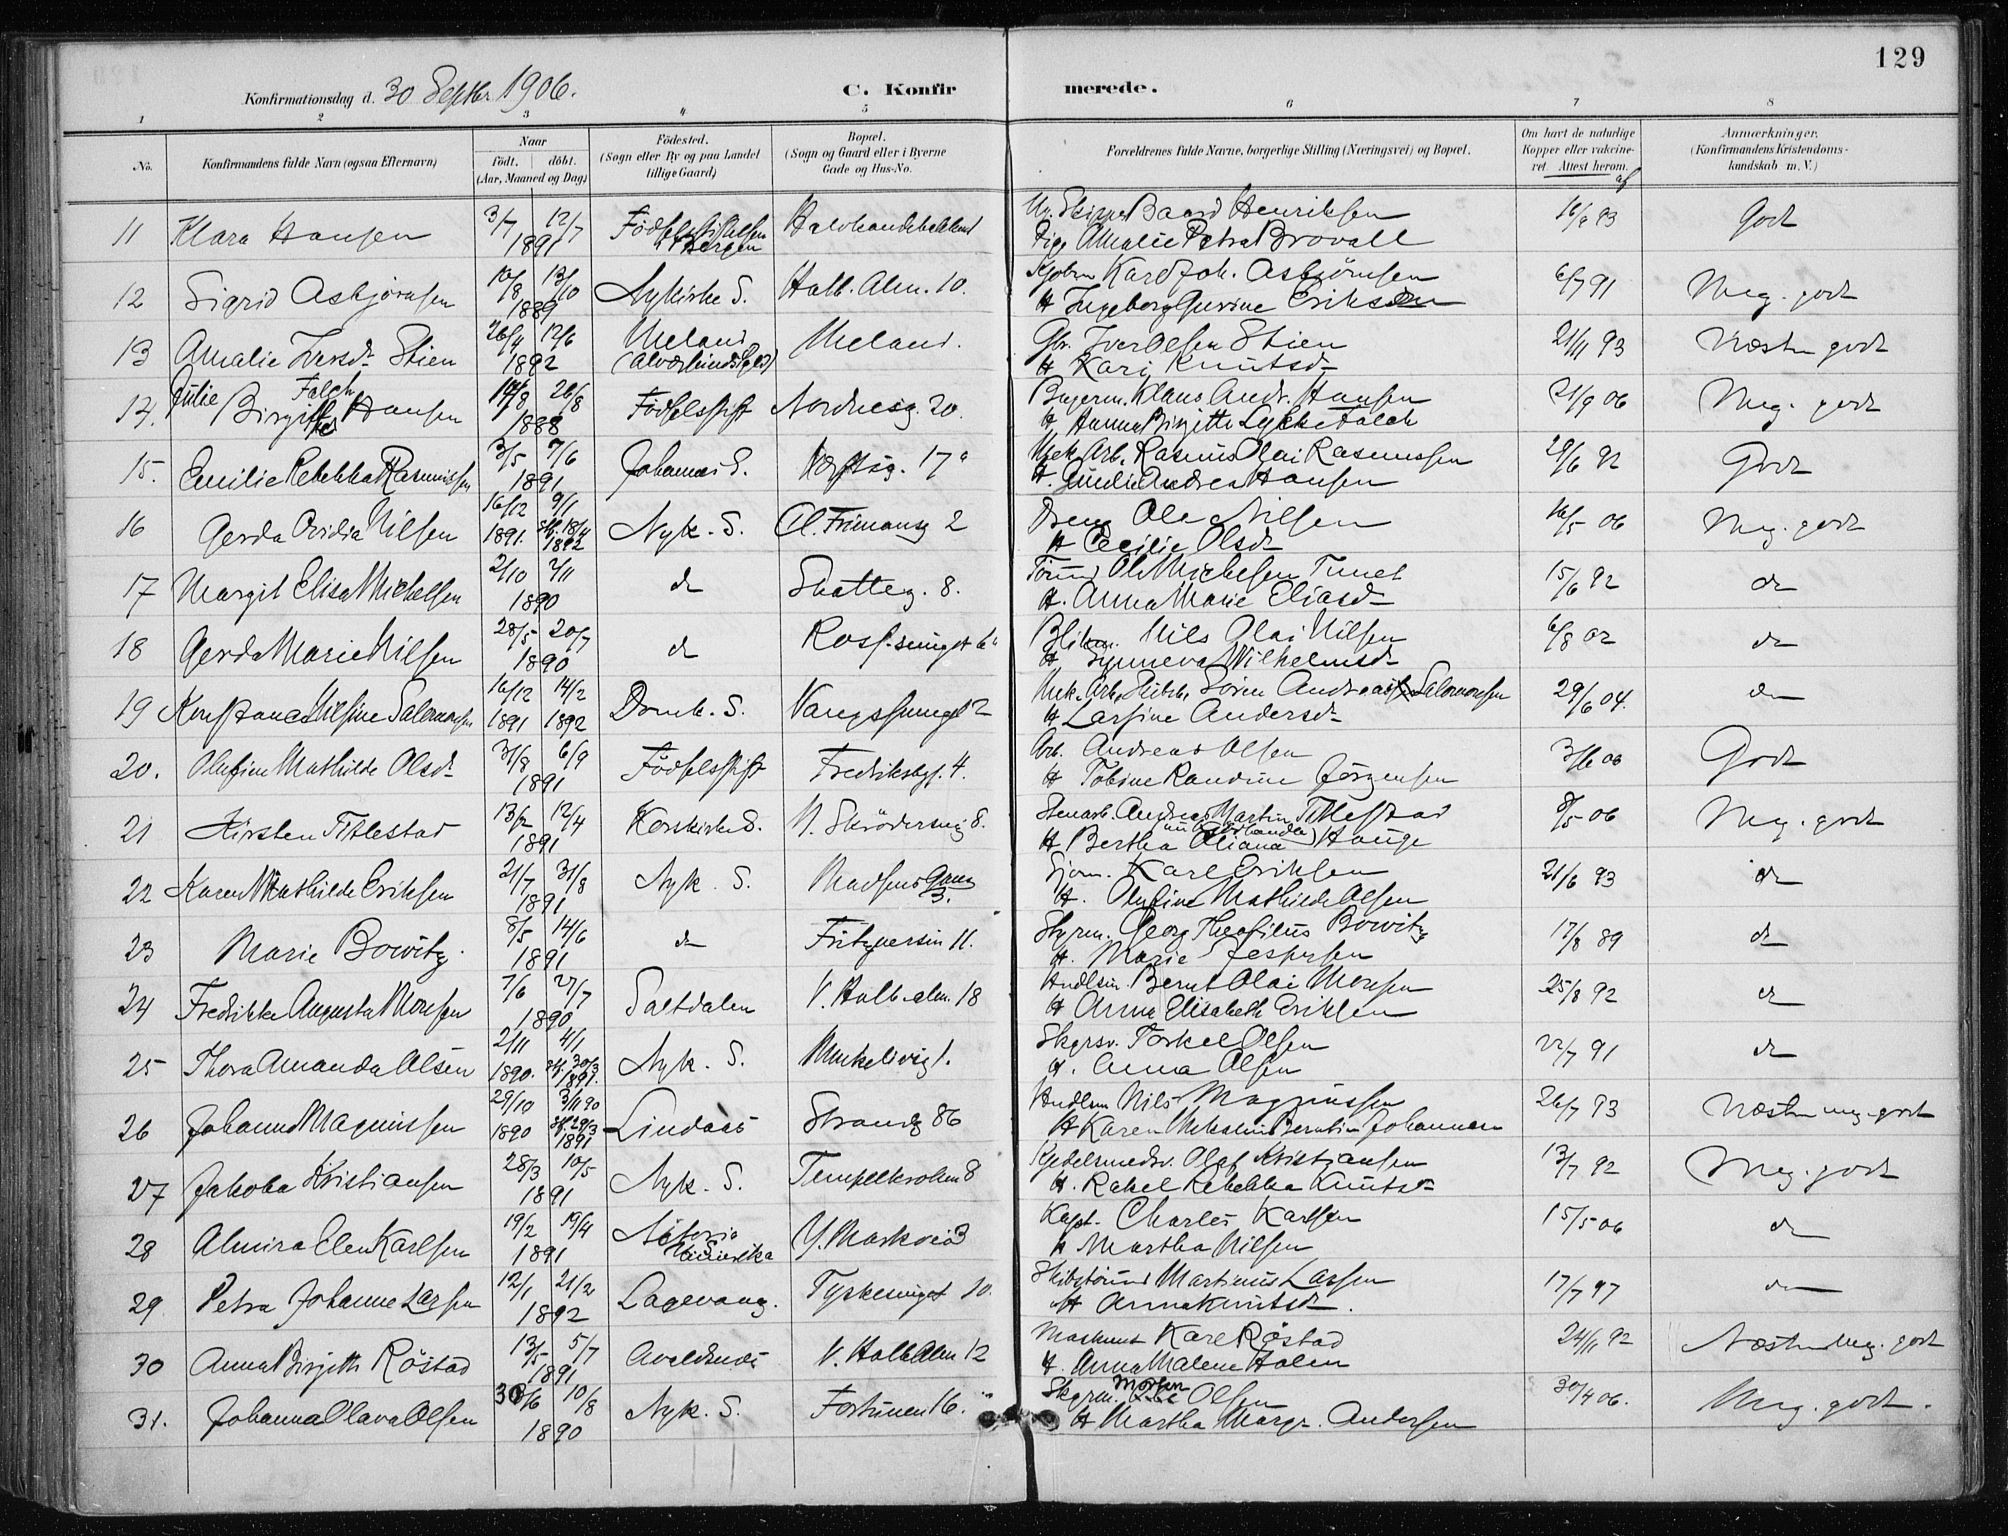 129
Konfirmationsdag d. 30 Septbr 1906.
C. Konfirmerede.
1 2 3 4 5 6 7 8
No. Konfirmandens fulde Navn (ogsaa Efternavn) Naar födt. döbt. (Aar, Maaned og Dag) Födested. (Sogn eller By og paa Landet tillige Gaard) Bopæl. (Sogn og Gaard eller i Byerne Gade og Hus-No. Forældrenes fulde Navne, borgerlige Stilling (Næringsvei) og Bopæl. Om havt de naturlige Kopper eller vakcineret. Attest herom. Anmærkninger. (Konfirmandens Kristendomskundskab m. V.)
11 Klara Hansen 3/7 12/7 1891 Födselsstiftelsen Bergen Baard Henriksen 93 Godt
Pige Amalie Petra Brovall
12 Sigrid Asbjørnsen 13/10 1889 Nykirke S. Halb. Alm. 10. Karl Joh. Asbjörnsen 6/7 91 Meg. godt
H Ingeborg Gurine Eriksen
13 Amalie Iversdr Stien 26/4 12/6 1892 Meland Meland. Gbr. Iver Olsen Stien 21/11 93 Næsten godt
H Kari Knutsdr
14. Julie Birgitte Falch Hansen 26/8 1888 Födselsstift Nordnesg. 20. Bagerm. Klaus Andr. Hansen 21/9 06 Meg. godt
H Hanna Birgitte Lykke Falch
15. Emilie Rebekka Rasmussen 3/5 7/6 1891 Johannes S. 17 Mek. Arb. Rasmus Olai Rasmussen 29/6 92 Godt
H. Andrea Hansen
16 Gerda Ovidia Nilsen 16/12 1891. 9/1 stf. 18/4 1892 Nyk. S. 2 Ole Nilsen 16/5 06 Meg. godt
H Cecilie Olsdr
17 Margit Elisa Michelsen 2/10 2/11 1890 do Skotteg. 8. Ole Michelsen Tunet 15/6 92 do
H. Anna Marie Eliasdr
18 Gerda Marie Nilsen 28/5 20/7 1890 do Nils Olai Nilsen 6/8 02 do
H. Synneva Wilhelmsdr
19 Konstance Nilsine Salomonsen 16/12 1891 14/2 1892 Domk. S. 2 Mek. Arb. Sören Andreas Salomonsen 29/6 04. do
H Larsine Andersdr
20. Olufine Mathilde Olsdr 31/8 6/9 1891 Födselsstift Fredriksbgt. 4. Arb. Andreas Olsen 06 Godt
H Tobine Randine Jörgensen
21 Kirsten Titlestad 13/2 12/4 1891 Korskirke S. N. Skrödersmg 8. Stenarb. Andreas Martin Titlestad 8/5 06 Meg. godt
H Bertha Oliana Hauge
22 Karen Mathilde Eriksen 21/7 31/8 1891 Nyk. S. Madsens Gang 3. Sjöm. Karl Eriksen 21/6 93 do
H. Olufine Mathilde Olsen
23 Marie Bowitz. 8/5 14/6 1891 do Fritznersm 11. Styrm. Georg Theofilus Bowitz 17/8 89 do
H. Marie Jespersen
24 Fredrikke Augusta Monsen 7/6 27/7 1890 Saltdalen V. Halb. alm. 18 Handlsm. Bernt Olai Monsen 25/8 92 do
H Anna Elisabeth Eriksen
25 Thora Amanda Olsen 2/11 1890. 4/1 stf. 30/3 1891. Nyk. S. 1. Skgrsv. Torkel Olsen 22/7 91 do
H. Anna Olsen
26 Johanne Magnussen 29/10 1890 3/11 90 stf. 29/3 1891 Lindaas Strandg 86 Handlsm Nils Magnussen 26/7 93 Næsten meg. godt
H Karen Johannesen
27 Jakoba Kristiansen 28/3 10/5 1891 Nyk. S. Tempelkroken 8 Kjedelsmedsv. Olaf Kristiansen 13/7 92 Meg. godt
H. Rakel Rebekka Knutsdr
28 Almira Elen Karlsen 19/2 19/4 1891 Astoria Amerika Y. Markvei 3 Kapt. Charles Karlsen 15/5 06 do
H Martha Nilsen
29. Petra Johanne Larsen 12/1 21/2 1892 Laxevaag. Tyskesmuget 10. Skibstömmr Martinus Larsen 17/7 97 do
H Anna Knutsdr.
30 Anna Birgith Röstad 13/5 5/7 1891 Avaldsnes V. Halb Alm 12 Maskinist Karl Röstad 24/11 92 Næsten Meg. godt
H. Anna Malene Holen
31. Johanna Olava Olsen 30/6 10/8 1890 Nyk. S. Fortunen 16. Skgrm. Morten Olsen 30/4 06. Meg. godt.
H Martha Margr. Andersen